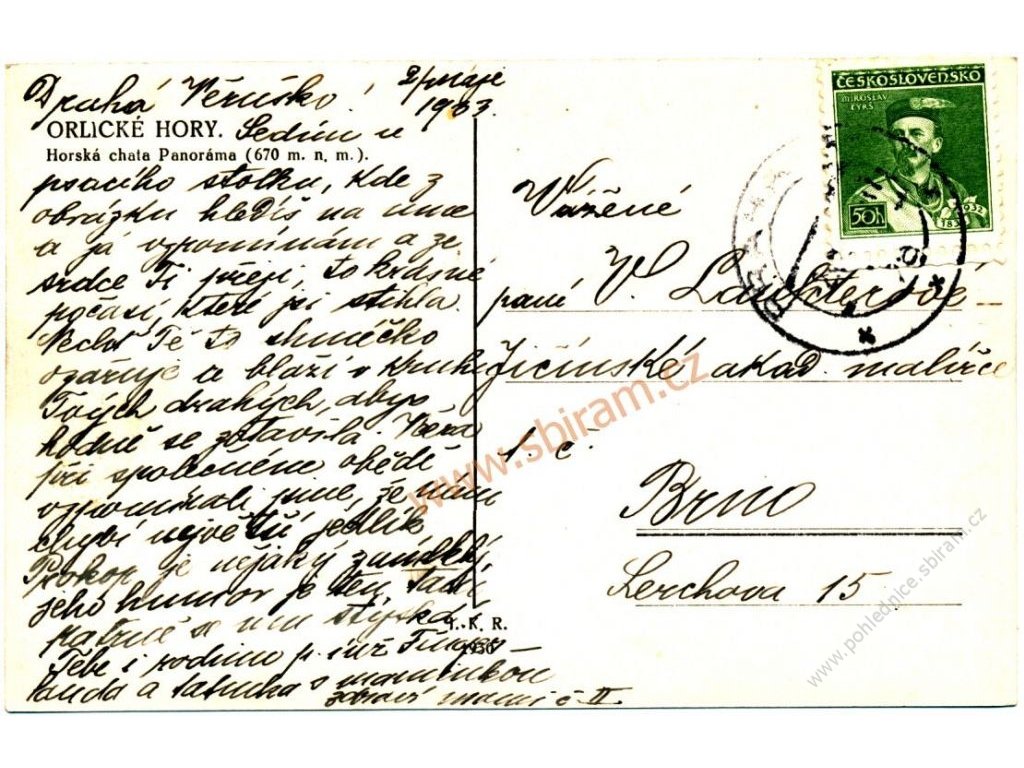 Drahá Věruško! 2/máje
1933.
ORLICKÉ HORY. Sedím u
Horská chata Panoráma (670 m. n. m.).
psacího stolku, kde z
obrázku hledíš na mne
a já vzpomínám a ze
srdce Ti přeji, to krásné
počasí, které jsi stihla.
Nechť Tě to sluníčko
ozařuje a blaží v kruhu
Tvých drahých, abys
hodně se zotavila. Včera
při společném obědě
vzpomínali jsme, že nám
chybí největší jedlík
Prokop je nějaký
jeho humor je ten tam
patrně se mu stýská
Tebe i rodinu p. inž
a tatínka s maminkou
zdraví mami č. II
I. K. R.
1930
ČESKOSLOVENSKO
MIROSLAV
TYRŠ
50h
1832
1932
PRAHA
Vážené
paní V.
Jičínské akad. malířce
t. č.
Brno
Lerchova 15
www.sbiram.cz
www.pohlednice.sbiram.cz